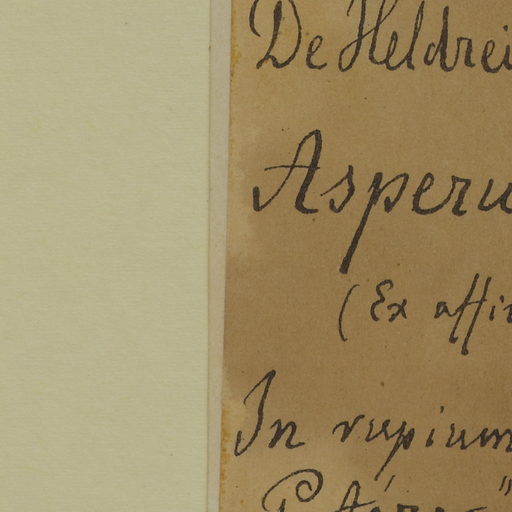 De Heldrei
Asperu
(Ex affi
In rupium